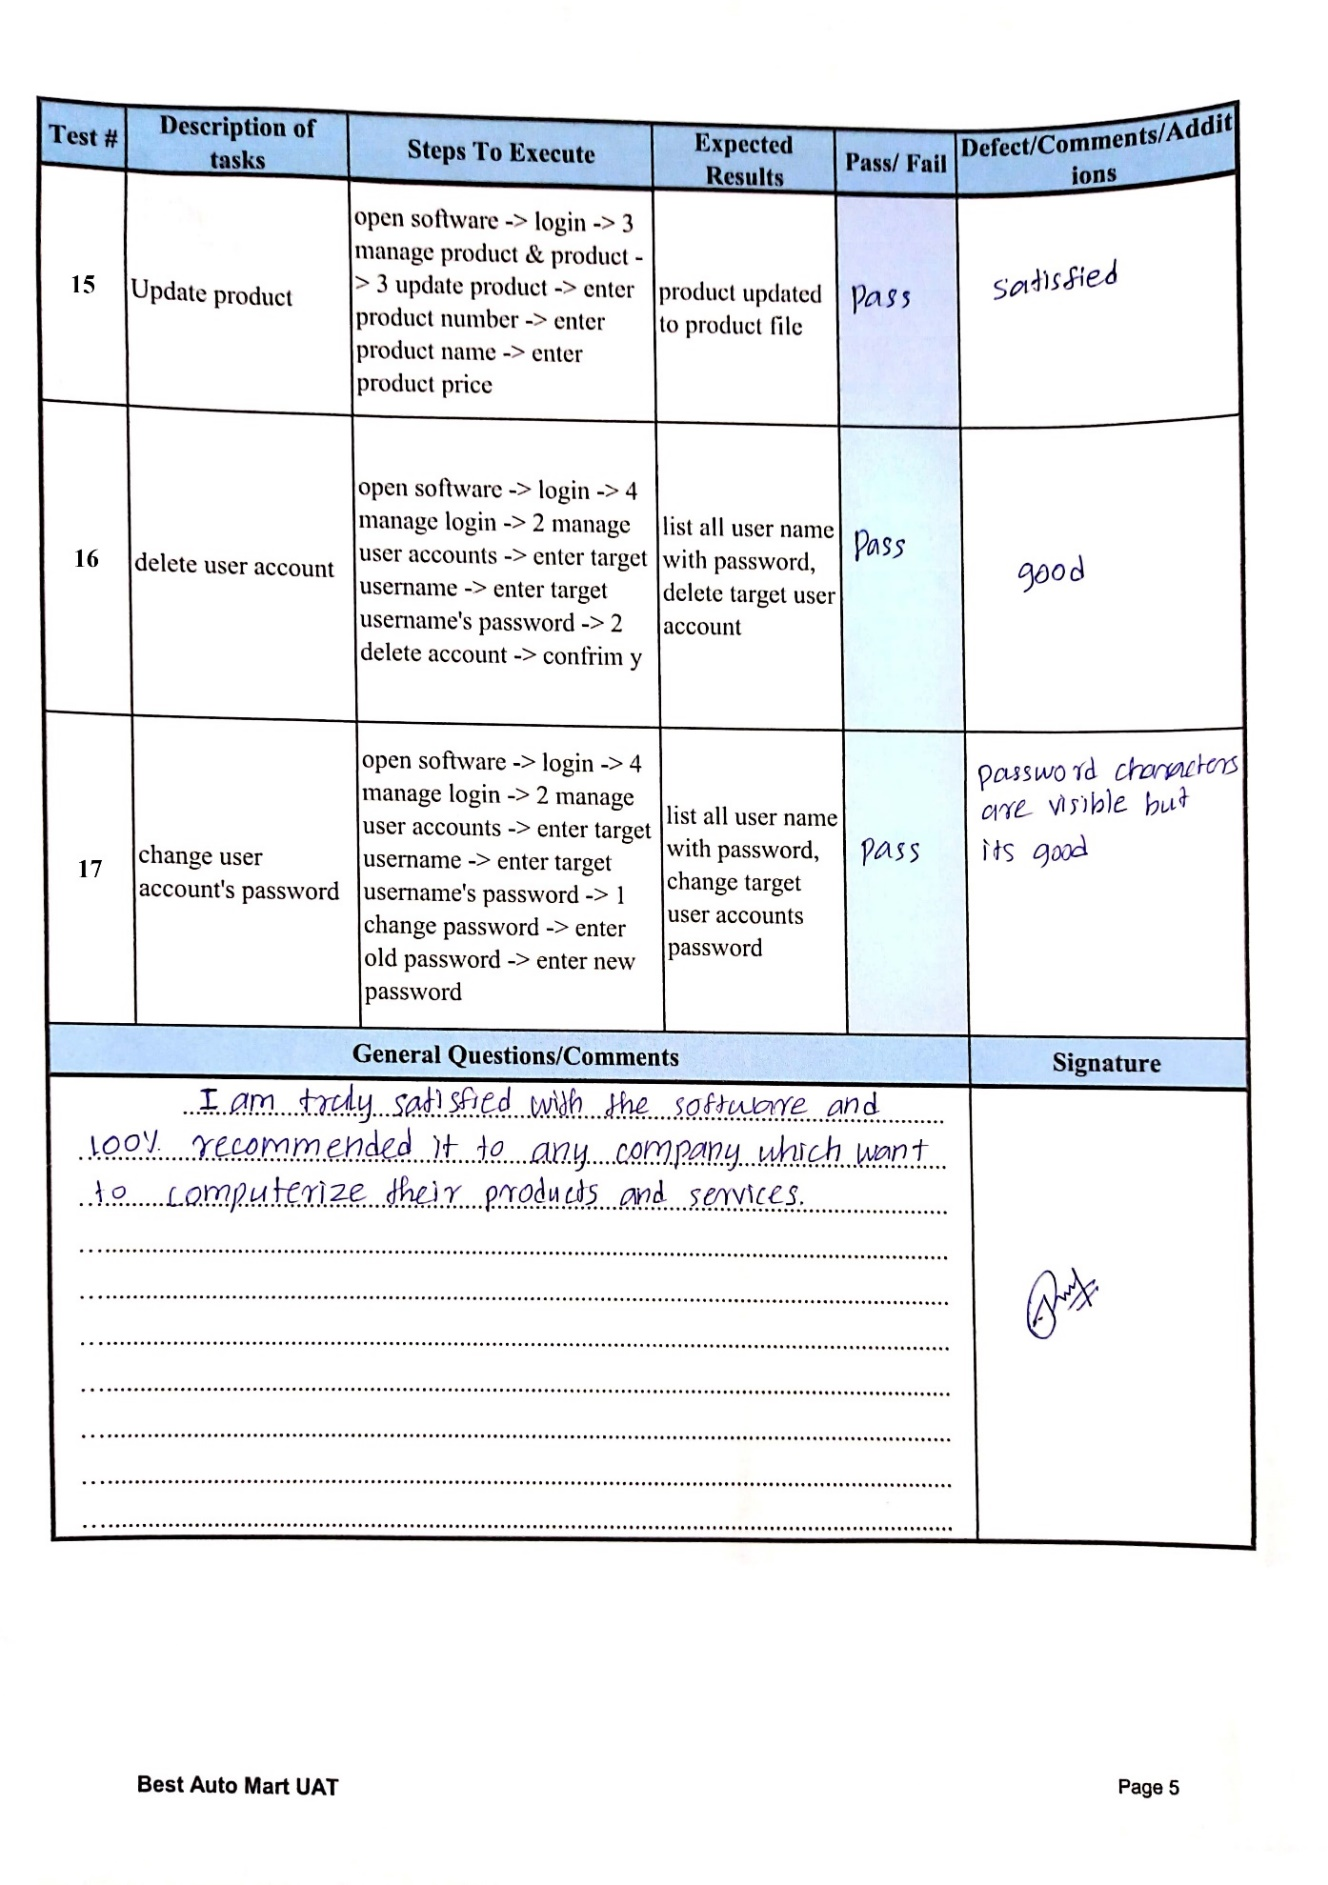 Test #
Description of
tasks
Steps To Execute
Expected
Results
Pass/ Fail
Defect/Comments/Addit
ions
15
Update product
open software -> login -> 3
manage product & product -
> 3 update product -> enter
product number -> enter
product name -> enter
product price
product updated
to product file
Pass
Satisfied
16
delete user account
open software -> login -> 4
manage login -> 2 manage
user accounts -> enter target
username -> enter target
username's password -> 2
delete account -> confrim y
list all user name
with password,
delete target user
account
Pass
good
17
change user
account's password
open software -> login -> 4
manage login -> 2 manage
user accounts -> enter target
username -> enter target
username's password -> 1
change password -> enter
old password -> enter new
password
list all user name
with password,
change target
user accounts
password
Pass
password characters
are visible but
its good
General Questions/Comments
Signature
I am truly satisfied with the software and
100% recommended it to any company which want
to computerize their products and services.
Best Auto Mart UAT
Page 5